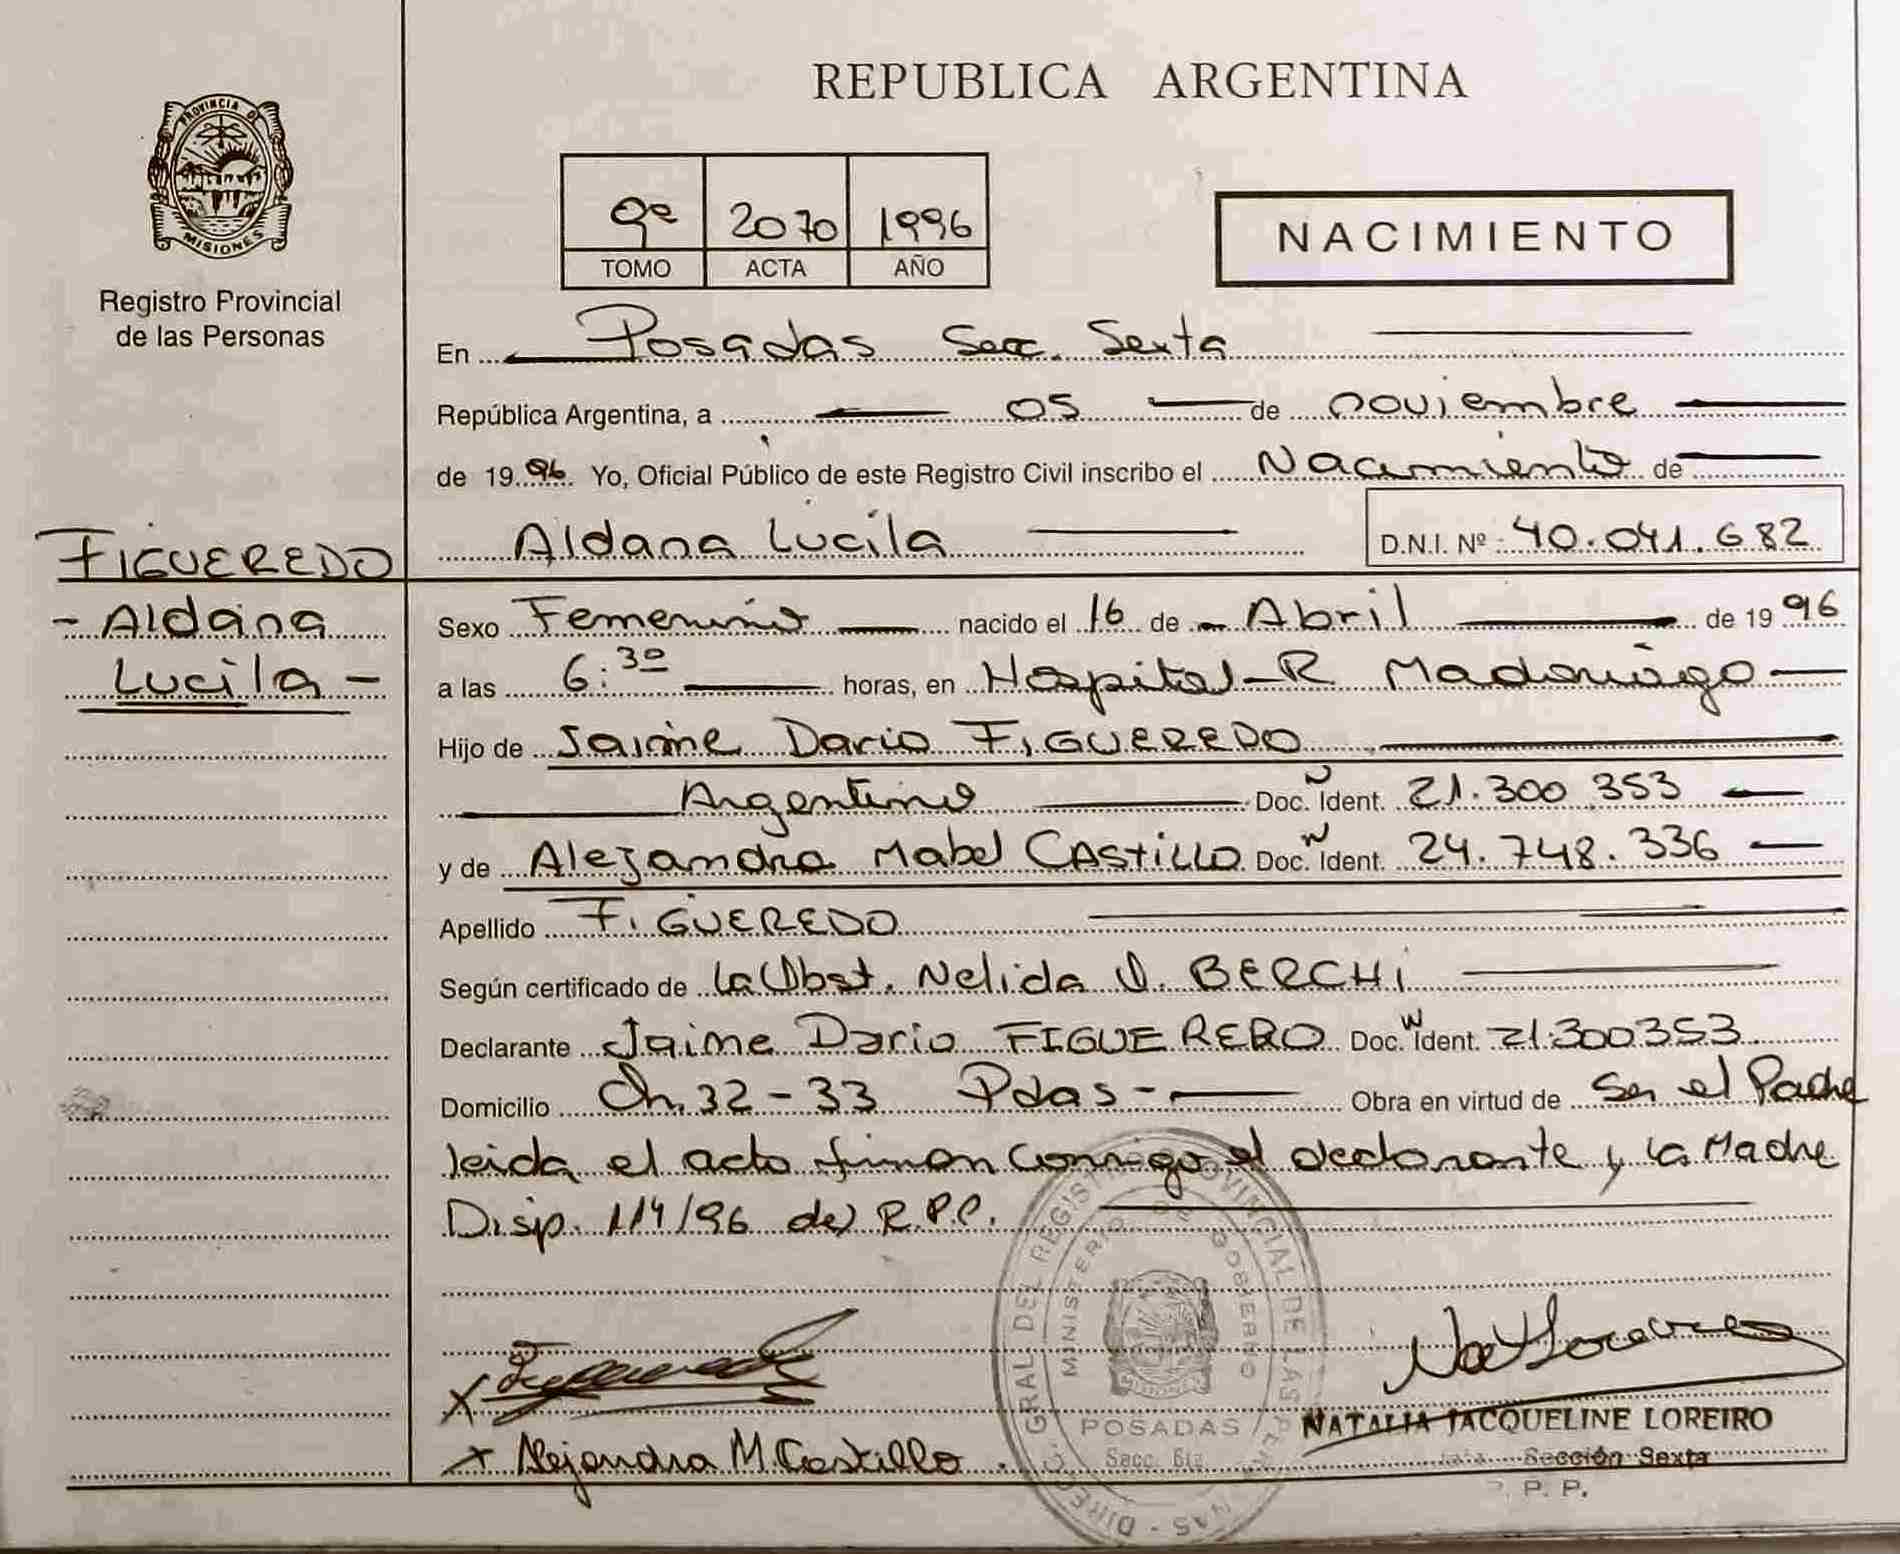 REPUBLICA ARGENTINA
PROVINCIA DE
MISIONES
Registro Provincial
de las Personas
9º 2070 1996
TOMO ACTA AÑO
NACIMIENTO
En Posadas Secc. Sexta
República Argentina, a 05 de noviembre
de 1996. Yo, Oficial Público de este Registro Civil inscribo el Nacimiento de
Aldana Lucila D.N.I. Nº 40.041.682
FIGUEREDO
- Aldana
Lucila -
Sexo Femenino nacido el 16 de Abril de 1996
a las 6:30 horas, en Hospital-R Madariaga
Hijo de Jaime Dario FIGUEREDO
Argentino Doc. Ident. 21.300.353
y de Alejandra Mabel CASTILLO Doc. Ident. 24.748.336
Apellido FIGUEREDO
Según certificado de la Obst. Nelida O. BERCHI
Declarante Jaime Dario FIGUERERO Doc. Ident. 21.300353
Domicilio Ch. 32-33 Pdas- Obra en virtud de Ser el Padre
leida el acta firman conmigo el declarante y la Madre
Disp. 114/96 del R.P.P.
Figueredo
x Alejandra M. Castillo.
DIREC. GRAL. DEL REGISTRO PROVINCIAL DE LAS PERSONAS
MINISTERIO DE GOBIERNO
MISIONES
POSADAS
Secc. 6ta
Nat Loreiro
NATALIA JACQUELINE LOREIRO
Sección Sexta
P. P.